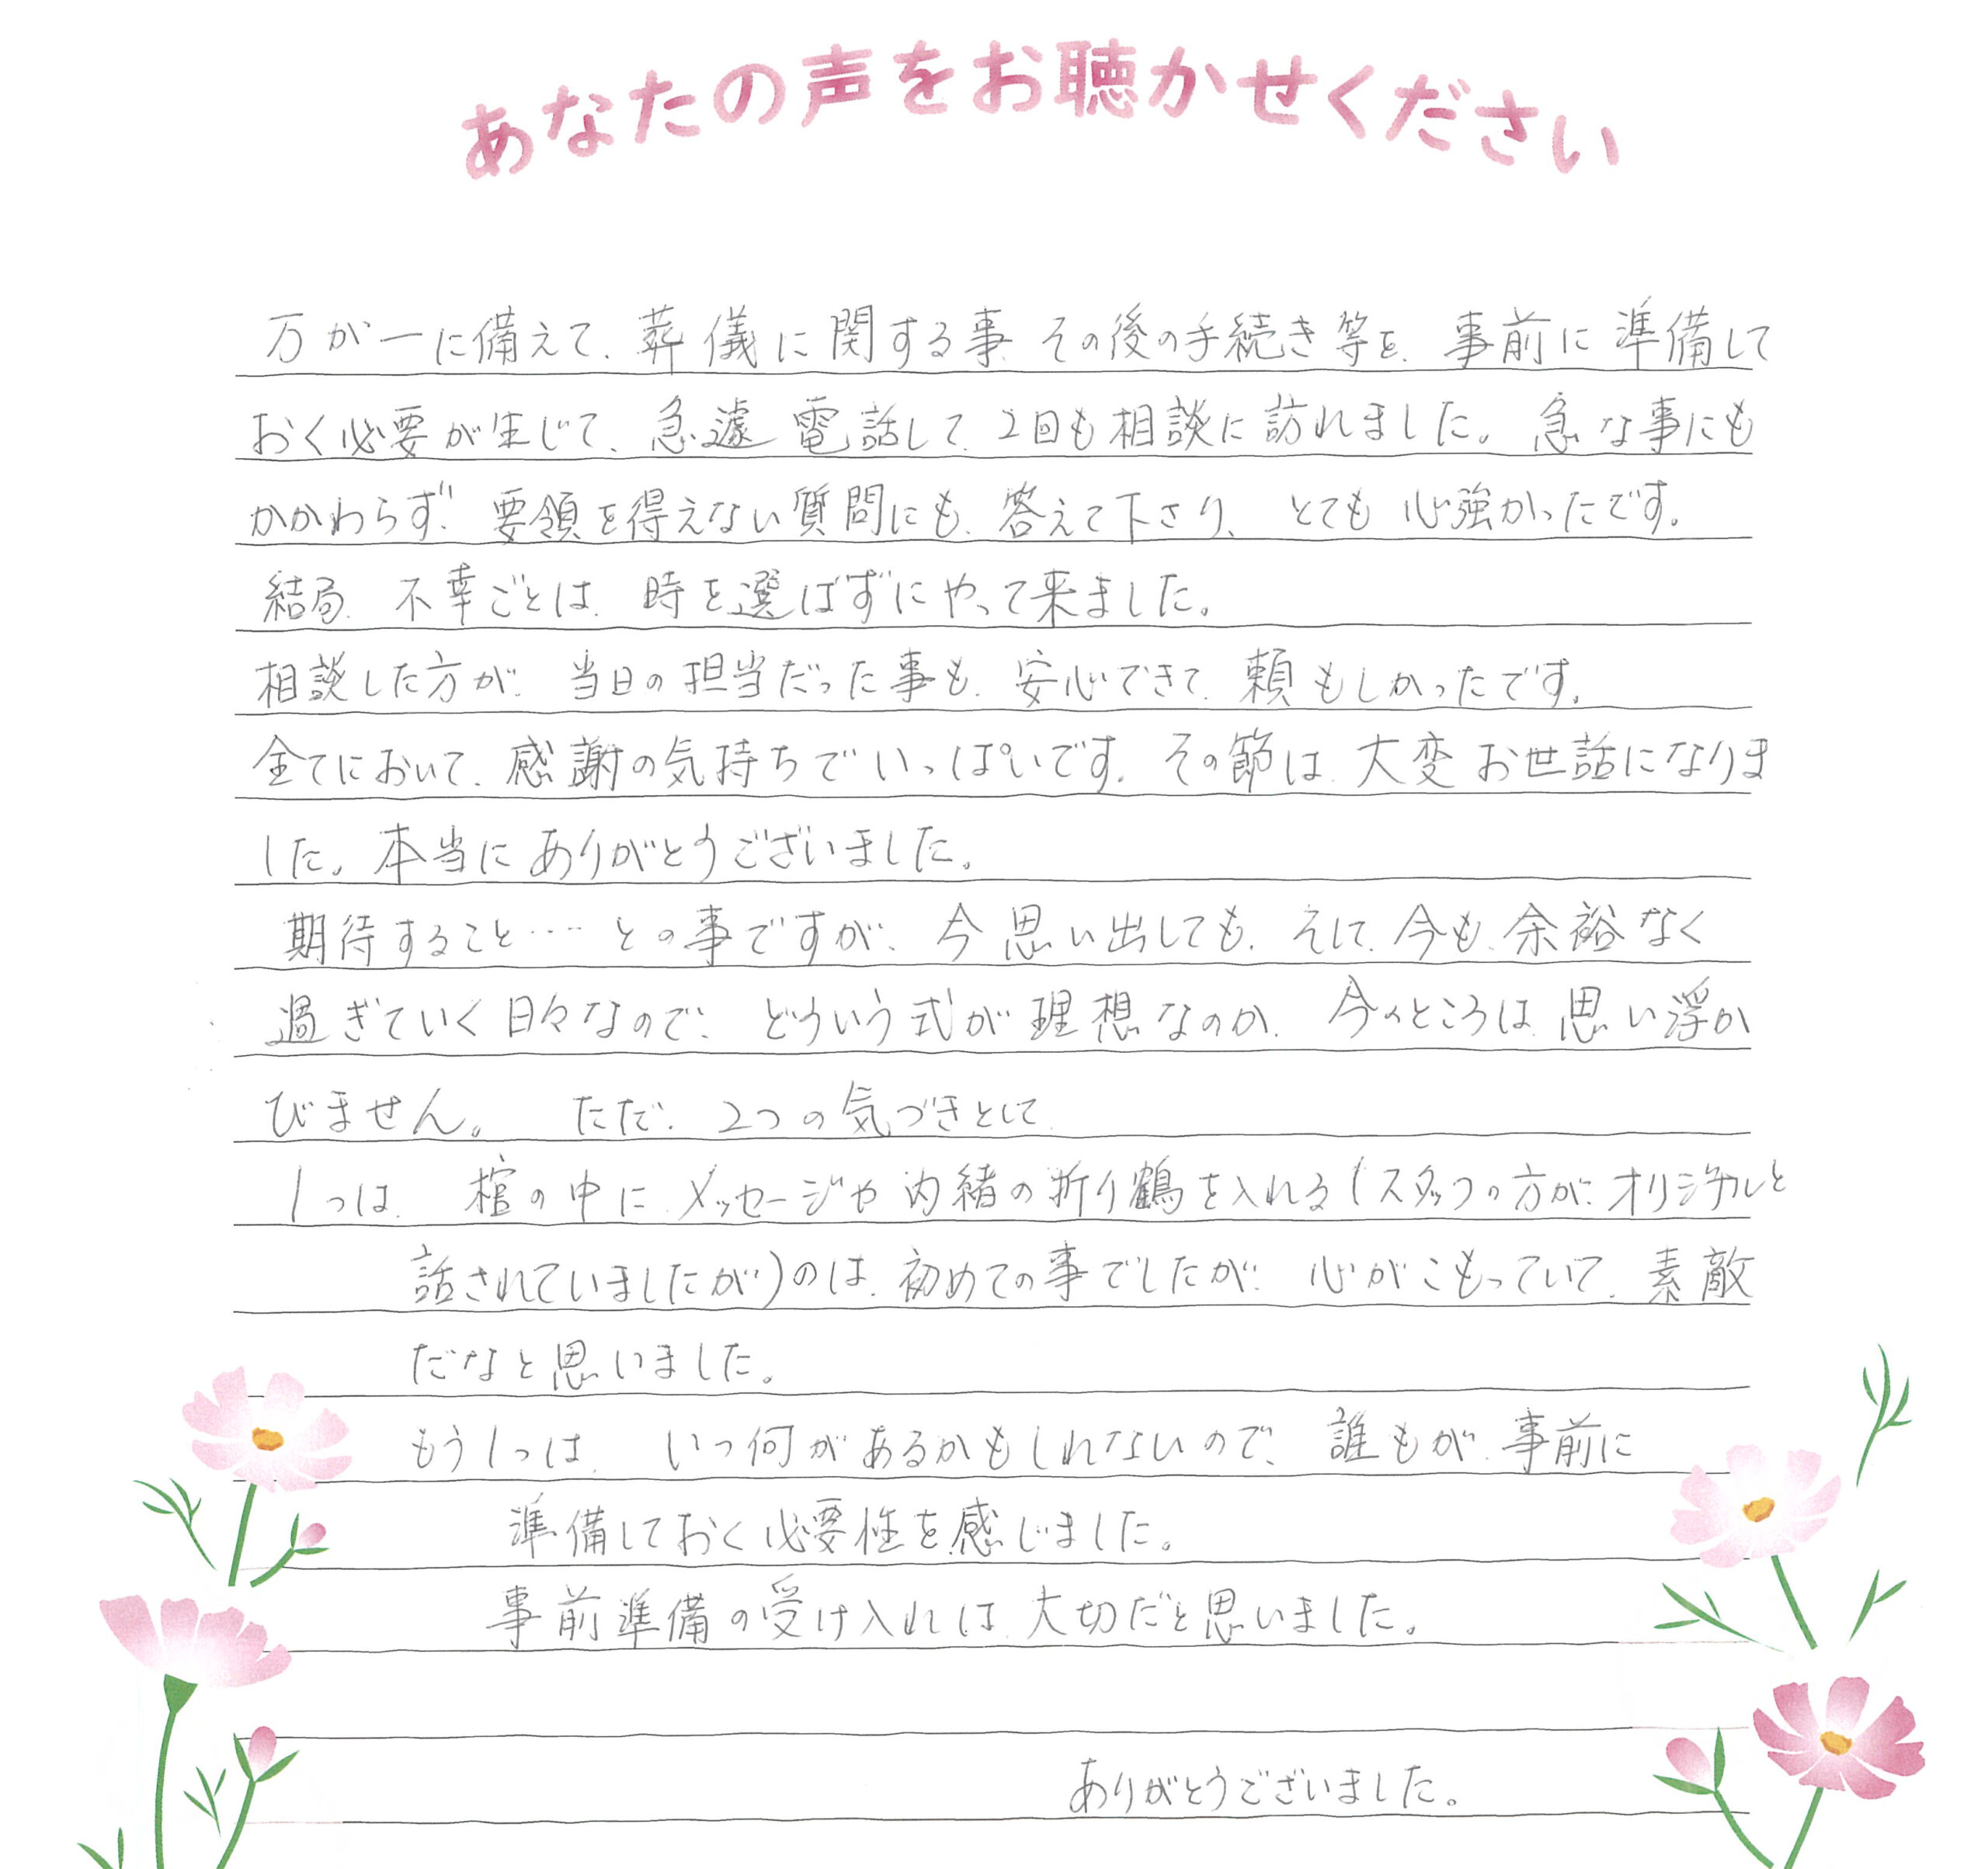 あなたの声をお聴かせください
万が一に備えて、葬儀に関する事、その後の手続き等を、事前に準備して
おく必要が生じて、急遽電話して、2回も相談に訪れました。急な事にも
かかわらず、要領を得えない質問にも、答えて下さり、とても心強かったです。
結局、不幸ごとは、時を選ばずにやって来ました。
相談した方が、当日の担当だった事も、安心できて、頼もしかったです。
全てにおいて、感謝の気持ちでいっぱいです。その節は、大変お世話になりま
した。本当にありがとうございました。
期待すること…‥との事ですが、今思い出しても、そして、今も、余裕なく
過ぎていく日々なので、どういう式が理想なのか、今のところは、思い浮か
びません。 ただ、2つの気づきとして、
1つは、棺の中に、メッセージや内緒の折り鶴を入れる(スタッフの方が、オリジナルと
話されていましたが)のは、初めての事でしたが、心がこもっていて、素敵
だなと思いました。
もう1つは、いつ何があるかもしれないので、誰もが、事前に
準備しておく必要性を感じました。
事前準備の受け入れは、大切だと思いました。
ありがとうございました。